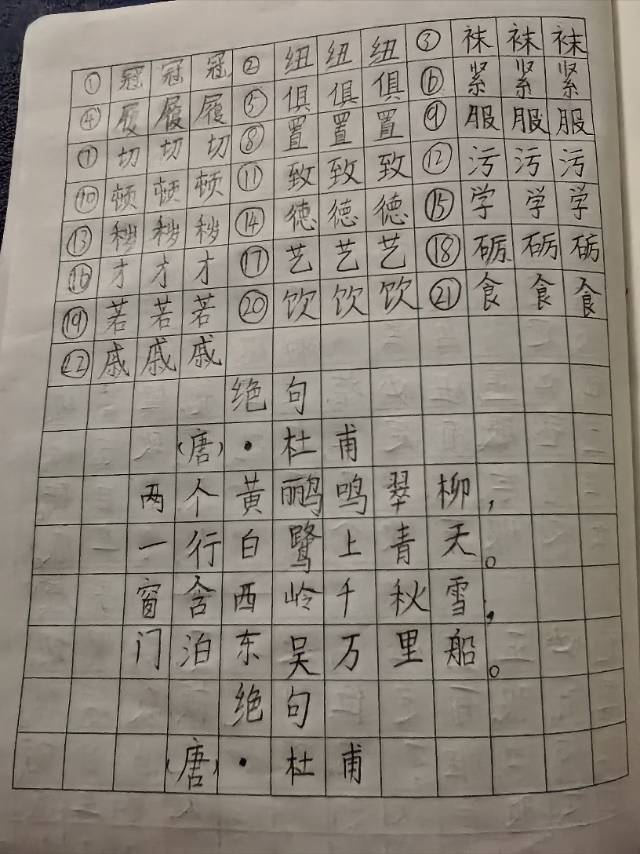 ①冠冠冠②纽纽纽③袜袜袜
④履履履⑤俱俱俱⑥紧紧紧
⑦切切切⑧置置置⑨服服服
⑩顿顿顿⑪致致致⑫污污污
⑬秽秽秽⑭德德德⑮学学学
⑯才才才⑰艺艺艺⑱砺砺砺
⑲若若若⑳饮饮饮㉑食食食
㉒戚戚戚
绝句
(唐)·杜甫
两个黄鹂鸣翠柳,
一行白鹭上青天。
窗含西岭千秋雪,
门泊东吴万里船。
绝句
(唐)·杜甫